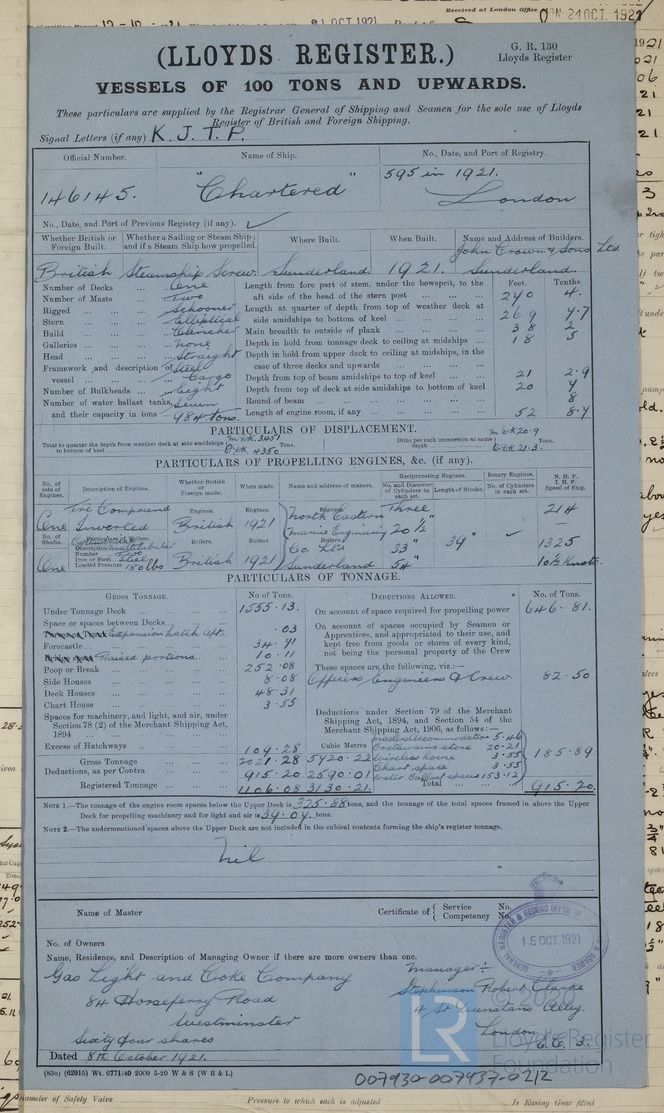 Received at London Office
21 OCT 1921
24 OCT. 1921
(LLOYDS REGISTER.)
G. R. 130
Lloyds Register
VESSELS OF 100 TONS AND UPWARDS.
These particulars are supplied by the Registrar General of Shipping and Seamen for the sole use of Lloyds
Register of British and Foreign Shipping.
Signal Letters (if any) K. J. T. P.
Official Number. Name of Ship. No., Date, and Port of Registry.
146145. "Chartered" 595 in 1921.
London
No., Date, and Port of Previous Registry (if any).
Whether British or Foreign Built. Whether a Sailing or Steam Ship; and if a Steam Ship how propelled. Where Built. When Built. Name and Address of Builders.
British Steamship Screw. Sunderland. 1921. John Crown & Sons Ltd Sunderland.
Number of Decks One
Number of Masts Two
Rigged Schooner
Stern Elliptical
Build Clencher
Galleries None
Head Straight
Framework and description of vessel Steel Cargo
Number of Bulkheads Eight
Number of water ballast tanks, and their capacity in tons Seven 984 tons.
Feet. Tenths
Length from fore part of stem, under the bowsprit, to the aft side of the head of the stern post 240 4.
Length at quarter of depth from top of weather deck at side amidships to bottom of keel
Main breadth to outside of plank 38 2
Depth in hold from tonnage deck to ceiling at midships 18 5
Depth in hold from upper deck to ceiling at midships, in the case of three decks and upwards
Depth from top of beam amidships to top of keel 21
Depth from top of deck at side amidships to bottom of keel 20
Round of beam 8
Length of engine room, if any 52
PARTICULARS OF DISPLACEMENT.
Total to quarter the depth from weather deck at side amidships to bottom of keel 3451 4350 Tons.
Ditto per inch immersion at same depth 20.9 21.3. Tons.
PARTICULARS OF PROPELLING ENGINES, &c. (if any).
No. of sets of Engines. Description of Engines. Whether British or Foreign made. When made. Name and address of makers. Reciprocating Engines. Rotary Engines. N. H. P. I. H. P. Speed of Ship.
No. and Diameter of Cylinders in each set. Length of Stroke. No. of Cylinders in each set.
One Tri Compound Inverted Engines. British Engines. 1921 Engines. North Eastern Marine Engineering Co. Ltd Sunderland Three 20½" 33" 54" 39" 214
No. of Shafts. Particulars of Boilers. Description Number Two Iron or Steel Steel Loaded Pressure 180 lbs Boilers. British Boilers 1921 Boilers 1325
One 10½ Knots
PARTICULARS OF TONNAGE.
GROSS TONNAGE. No of Tons. DEDUCTIONS ALLOWED. No. of Tons.
Under Tonnage Deck 1555.13.
Space or spaces between Decks
Expansion hatch Aft. .03
Forecastle 34.41
Raised portions 10.11
Poop or Break 252.08
Side Houses 8.08
Deck Houses 48.31
Chart House 3.55
Spaces for machinery, and light, and air, under Section 78 (2) of the Merchant Shipping Act, 1894
Excess of Hatchways 109.28
Cubic Metres
Gross Tonnage 2021.28 5720.22
Deductions, as per Contra 915.20 2590.01
Registered Tonnage 1106.08 3130.21.
On account of space required for propelling power 646.81.
On account of spaces occupied by Seamen or Apprentices, and appropriated to their use, and kept free from goods or stores of every kind, not being the personal property of the Crew
These spaces are the following, viz.:—
Officers Engineers & Crew 82.50
Deductions under Section 79 of the Merchant Shipping Act, 1894, and Section 54 of the Merchant Shipping Act, 1906, as follows:—
Masters Accommodation 5.46
Boatswains store 20.21
Wireless house 3.55
Chart space 3.55
Water Ballast spaces 153.12
185.89
Total 915.20.
NOTE 1.—The tonnage of the engine room spaces below the Upper Deck is 325.88 tons, and the tonnage of the total spaces framed in above the Upper
Deck for propelling machinery and for light and air is 39.04. tons.
NOTE 2.—The undermentioned spaces above the Upper Deck are not included in the cubical contents forming the ship's register tonnage.
Nil
Name of Master Certificate of { Service No. Competency No.
15 OCT. 1921
No. of Owners
Name, Residence, and Description of Managing Owner if there are more owners than one.
Gas Light and Coke Company
84 Horseferry Road
Westminster
Sixty four shares
Manager:—
Stephenson Robert Clarke
4 St Dunstans Alley.
London
E.C. 3.
Dated 8th October 1921.
(830) (62915) Wt. 6771/40 2000 5-20 W & S (W B & L)
007930-007937-0212
LR
Lloyd's Register
Foundation
Diameter of Safety Valve Pressure to which each is adjusted Is Easing Gear fitted